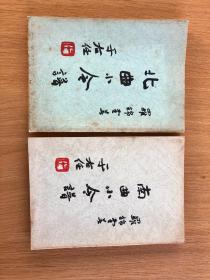 羅錦堂著
北曲小令譜
于右任
羅錦堂著
南曲小令譜
于右任